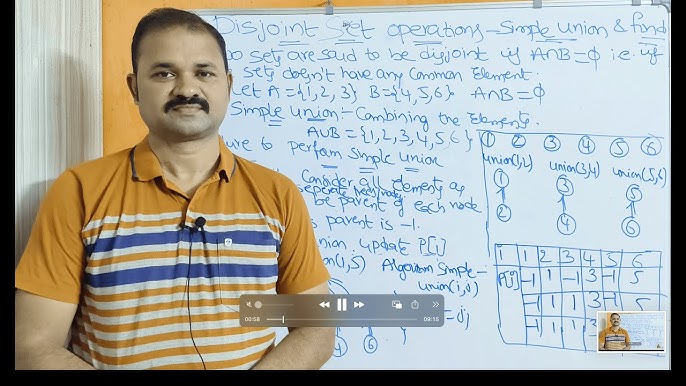 Disjoint Set operations - Simple union & find
sets are said to be disjoint if A∩B=ϕ i.e. if
sets doesn't have any Common Element.
Let A={1,2,3} B={4,5,6} A∩B=ϕ
Simple union:- Combining the Elements.
AUB={1,2,3,4,5,6}
to perform Simple union
Consider all elements as
be parent of each node
parent is -1.
union, update P[j]
(1,5) Algorithm Simple-
union(i,j)
4 6
1 2 3 4 5 6
union(1,2) union(3,4) union(5,6)
1 3 5
2 4 6
i 1 2 3 4 5 6
P[i] -1 1 -1 3 -1 5
-1 1 1 3 -1 5
-1 1 1 3
00:58 09:15